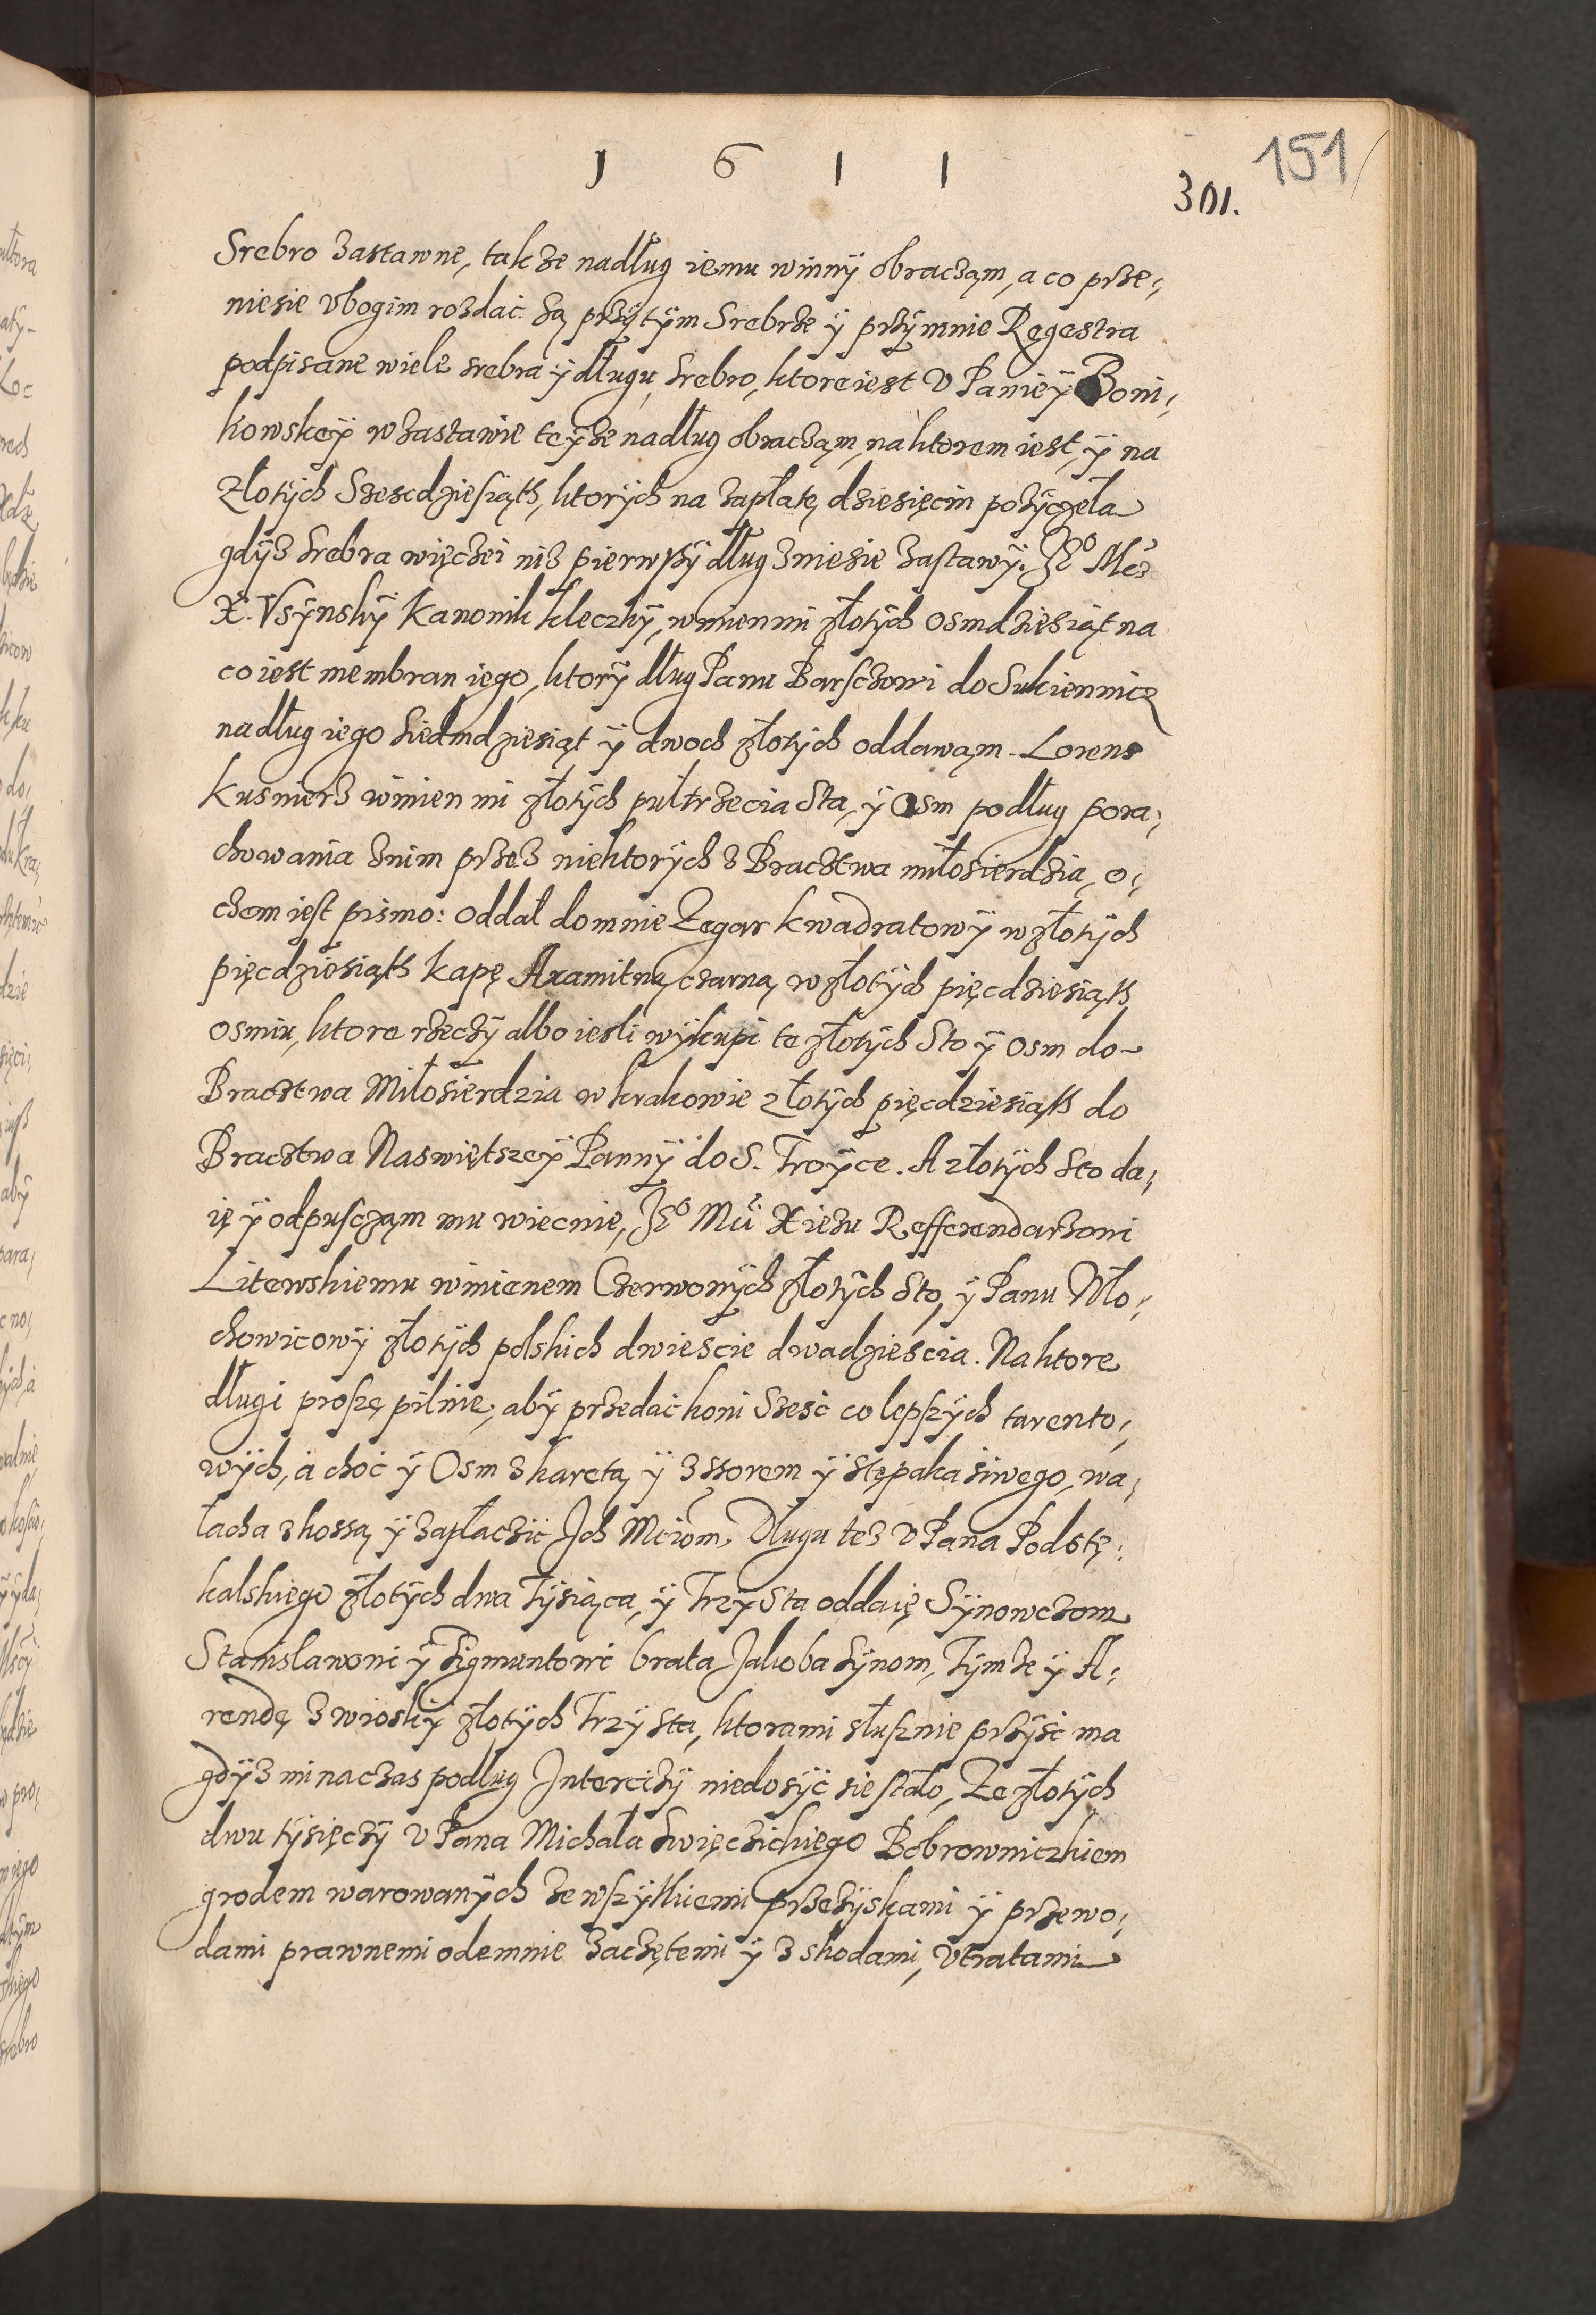 1 6 1 1
151
301.
Srebro zastawne, takze nadług iemu winnÿ obracząm, a co prze,
niesie vbogim rozdać. Są przÿtÿm Srebrze ÿ przÿmnie Regestra
podpisane wiele srebra ÿ długu, Srebro, ktore iest v Panieÿ Boni,
kowskeÿ w zastawie teÿze nadług obracząm, na ktorem iest, ÿ na
złotÿch Szescdziesiąth, ktorÿch na zapłatę dziesięcin pozÿczeła
gdÿz srebra więczei niz pierwszÿ dług zniesie zastawÿ. Jeo Mćz
X. Vsÿnskÿ Kanonik kleczkÿ, winien mi złotÿch osmdziesiąt na
co iest membran iego, ktorÿ dług Panu Barsczowi do Sukiennicz
nadług iego siedmdziesiąt ÿ dwoch złotÿch oddawąm. Lorens
kusnierz winien mi złotÿch pułtrzecia sta, ÿ Osm podług pora,
chowania znim przez niektorÿch z Bractwa miłosierdzia, o,
czem iest pismo: oddał domnie Zegar kwadratowÿ w złotÿch
pięcdziesiąth kapę Axamitną czarną w złotÿch pięcdziesiąth
osmiu, ktore rzeczÿ albo iesli wÿkupi te złotÿch sto ÿ osm do
Bractwa Miłosierdzia w krakowie złotÿch pięcdziesiąth do
Bractwa Naswiętszeÿ Pannÿ do S. Troÿce. A złotÿch sto da,
ię ÿ odpuscząm mu wiecnie, Jeo Mci Xiezu Refferendarzowi
Litewskiemu winienem Czerwonÿch złotÿch sto, ÿ Panu Mło,
chowicowÿ złotÿch polskich dwiescie dwadziescia. Na ktore
długi proszę pilnie, abÿ przedać koni Szesć co lepszÿch tarento,
wÿch, á choć ÿ Osm z karetą ÿ z szorem ÿ stępaka siwego, wa,
łacha z kossą ÿ zapłaczić Jch Mciom. Długu tez v Pana Podstę,
kalskiego złotÿch dwa tÿsiąca, ÿ Trzÿ sta oddaię Sÿnowczom
Stanislawowi ÿ Sigmuntowi brata Jakoba sÿnom, tÿmze ÿ A,
rendę z wioskÿ złotÿch Trzÿ sta, ktora mi słusznie przÿsć ma
gdÿz mi na czas podług Jnterczizÿ niedosÿć sie stało, Ze złotÿch
dwu tÿsięczÿ v Pana Michała Swięczickiego Bobrowniczkiem
grodem warowanÿch ze wszÿtkiemi przezÿskami ÿ przewo,
dami prawnemi odemnie zaczętemi ÿ z skodami, vtratami